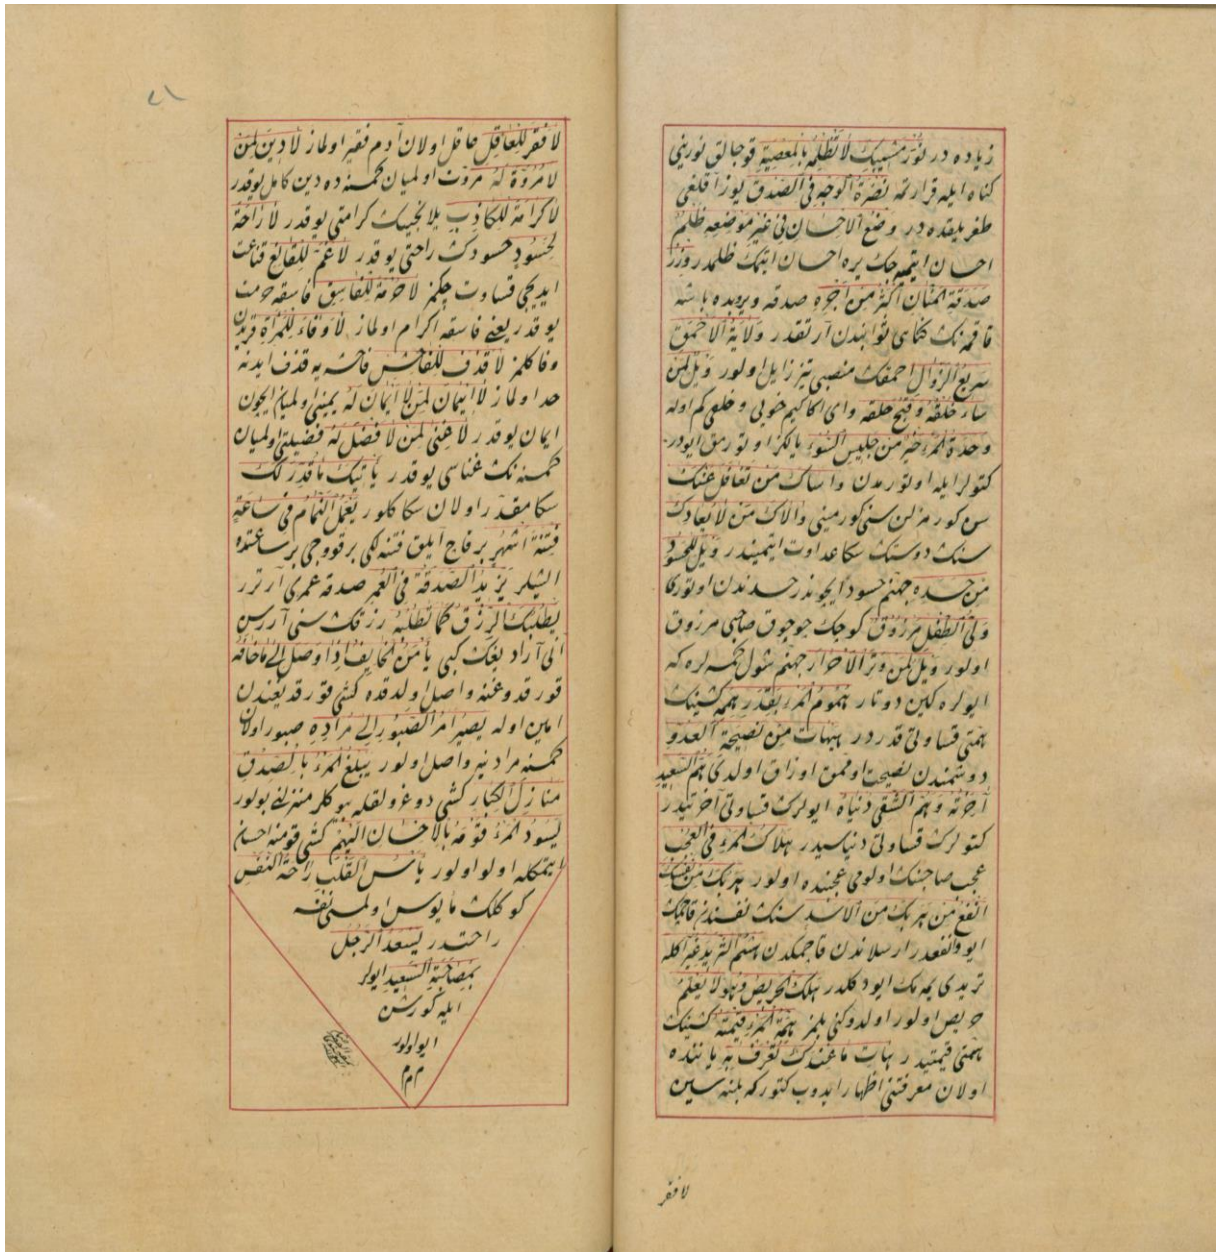 زیاده در نُوِّرْ مَشیبَکَ لَا تُظْلِمْهُ بِالْمَعْصِیَةِ قوجالق نورینی
کناه ایله قرارتمه نَضْرَةُ الْوَجْهِ فِی الصِّدْقِ یوز آقلغی
طغریلیقده در وَضْعُ الْاِحْسَانِ فِی غَیْرِ مَوْضِعِهِ ظُلْمٌ
احسان ایتمیه جک یره احسان ایتمک ظلمدر وِزْرُ
صَدَقَةِ الْمَنَّانِ اَکْثَرُ مِنْ اَجْرِهِ صدقه ویروبده باشه
قاقمه نک کناهی ثوابندن آرتقدر وَلَایَةُ الْاَحْمَقِ
سَرِیعُ الزَّوَالِ احمقک منصبی تیز زایل اولور وَیْلٌ لِمَنْ
سَاءَ خُلْقُهُ وَقَبُحَ خَلْقُهُ وای اکا کیم خویی و خلقی کم اوله
وَحْدَةُ الْمَرْءِ خَیْرٌ مِنْ جَلِیسِ السُّوءِ یالکز اوتورمق ایودر
کتولر ایله اوتورمدن وَاسَاکَ مَنْ تَغَافَلَ عَنْکَ
سن کورمزلن سنی کورمینی وَالَاکَ مَنْ لَا یُعَادِکَ
سنک دوستک سکا عداوت ایتمیندر وَیْلٌ لِلْحَسُودِ
مِنْ حَسَدِهِ جهنم حسود ایچوندر حسدندن اوتورکا
وَلِیُّ الطِّفْلِ مَرْزُوقٌ کوجک جوجوق صاحبی مرزوق
اولور وَیْلٌ لِمَنْ وَتَرَ الْاَحْرَارَ جهنم شول کمسه لره که
ایولره کین دوتار هُمُومُ الْمَرْءِ بِقَدْرِ هِمَّتِهِ کشینک
همتی قساوتی قدردر هَیْهَاتَ مِنْ نَصِیحَةِ الْعَدُوِّ
دوشمندن نصیحت اومّق اوزاق اولدی هَمُّ السَّعِیدِ
آخِرَتُهُ وَهَمُّ الشَّقِیِّ دُنْیَاهُ ایولرک قساوتی آخرتیدر
کتولرک قساوتی دنیاسیدر هَلَاکُ الْمَرْءِ فِی الْعُجْبِ
عجب صاحبنک اولومی عجبنده اولور هَرَبُکَ مِنْ نَفْسِکَ
اَنْفَعُ مِنْ هَرَبِکَ مِنَ الْاَسَدِ سنک نفسندن قاجمک
ایو وانفعدر ارسلاندن قاجمکدن هَشْمُ الثَّرِیدِ غَیْرُ اَکْلِهِ
تریدی یمه نک ایو دکلدر هَلَکَ الْحَرِیصُ وَهُوَ لَا یَعْلَمُ
حریص اولور اولدوکنی بلمز هِمَّةُ الْمَرْءِ قِیمَتُهُ کشینک
همتی قیمتیدر هَاتِ مَا عِنْدَکَ تُعْرَفْ بِهِ یاننده
اولان معرفتنی اظهار ایدوب کتور که بلنه سین
لا فقر
لَا فَقْرَ لِلْعَاقِلِ عاقل اولان آدم فقیر اولماز لَا دِینَ لِمَنْ
لَا مُرُوَّةَ لَهُ مروّت اولمیان کمسنه ده دین کامل یوقدر
لَا کَرَامَةَ لِلْکَاذِبِ یلانجینک کرامتی یوقدر لَا رَاحَةَ
لِحَسُودٍ حسودک راحتی یوقدر لَا غَمَّ لِلْقَانِعِ قناعت
ایدیجی قساوت چکمز لَا حُرْمَةَ لِلْفَاسِقِ فاسقه حرمت
یوقدر یعنی فاسقه اکرام اولماز لَا وَفَاءَ لِلْمَرْأَةِ قریدن
وفا کلمز لَا قَذْفَ لِلْفَاحِشِ فاحشه یه قذف ایدنه
حد اولماز لَا اِیمَانَ لِمَنْ لَا اَیْمَانَ لَهُ یمینی اولمیان ایچون
ایمان یوقدر لَا غِنَی لِمَنْ لَا فَضْلَ لَهُ فضیلتی اولمیان
کمسنه نک غناسی یوقدر یَاْتِیکَ مَا قُدِّرَ لَکَ
سکا مقدّر اولان سکا کلور یَعْمَلُ النَّمَّامُ فِی سَاعَةٍ
فِتْنَةَ اَشْهُرٍ بر قاج آیلق فتنه لکی بر قووجی بر ساعتده
ایشلر یَزِیدُ الصَّدَقَةُ فِی الْعُمْرِ صدقه عمری آرترر
یَطْلُبُکَ الرِّزْقُ کَمَا تَطْلُبُهُ رزقک سنی آرر سن
آنی آرادیغک کبی یَاْمَنُ الْخَایِفُ اِذَا وَصَلَ اِلَی مَا خَافَهُ
قورقدوغنه واصل اولدقده کشی قورقدیغندن
امین اوله یَصِیرُ اَمْرُ الصَّبُورِ اِلَی مُرَادِهِ صبور اولان
کمسنه مرادینه واصل اولور یَبْلُغُ الْمَرْءُ بِالصِّدْقِ
مَنَازِلَ الْکِبَارِ کشی دوغرولقله بیوکلر منزلنی بولور
یَسُودُ الْمَرْءُ قَوْمَهُ بِالْاِحْسَانِ اِلَیْهِمْ کشی قومنه احسان
ایتمکله اولو اولور یَاْسُ الْقَلْبِ رَاحَةُ النَّفْسِ
کوکلک مایوس اولمسی نفسه
راحتدر یَسْعَدُ الرَّجُلُ
بِمُصَاحَبَةِ السَّعِیدِ ایولر
ایله کورشن
ایو اولور
م م م